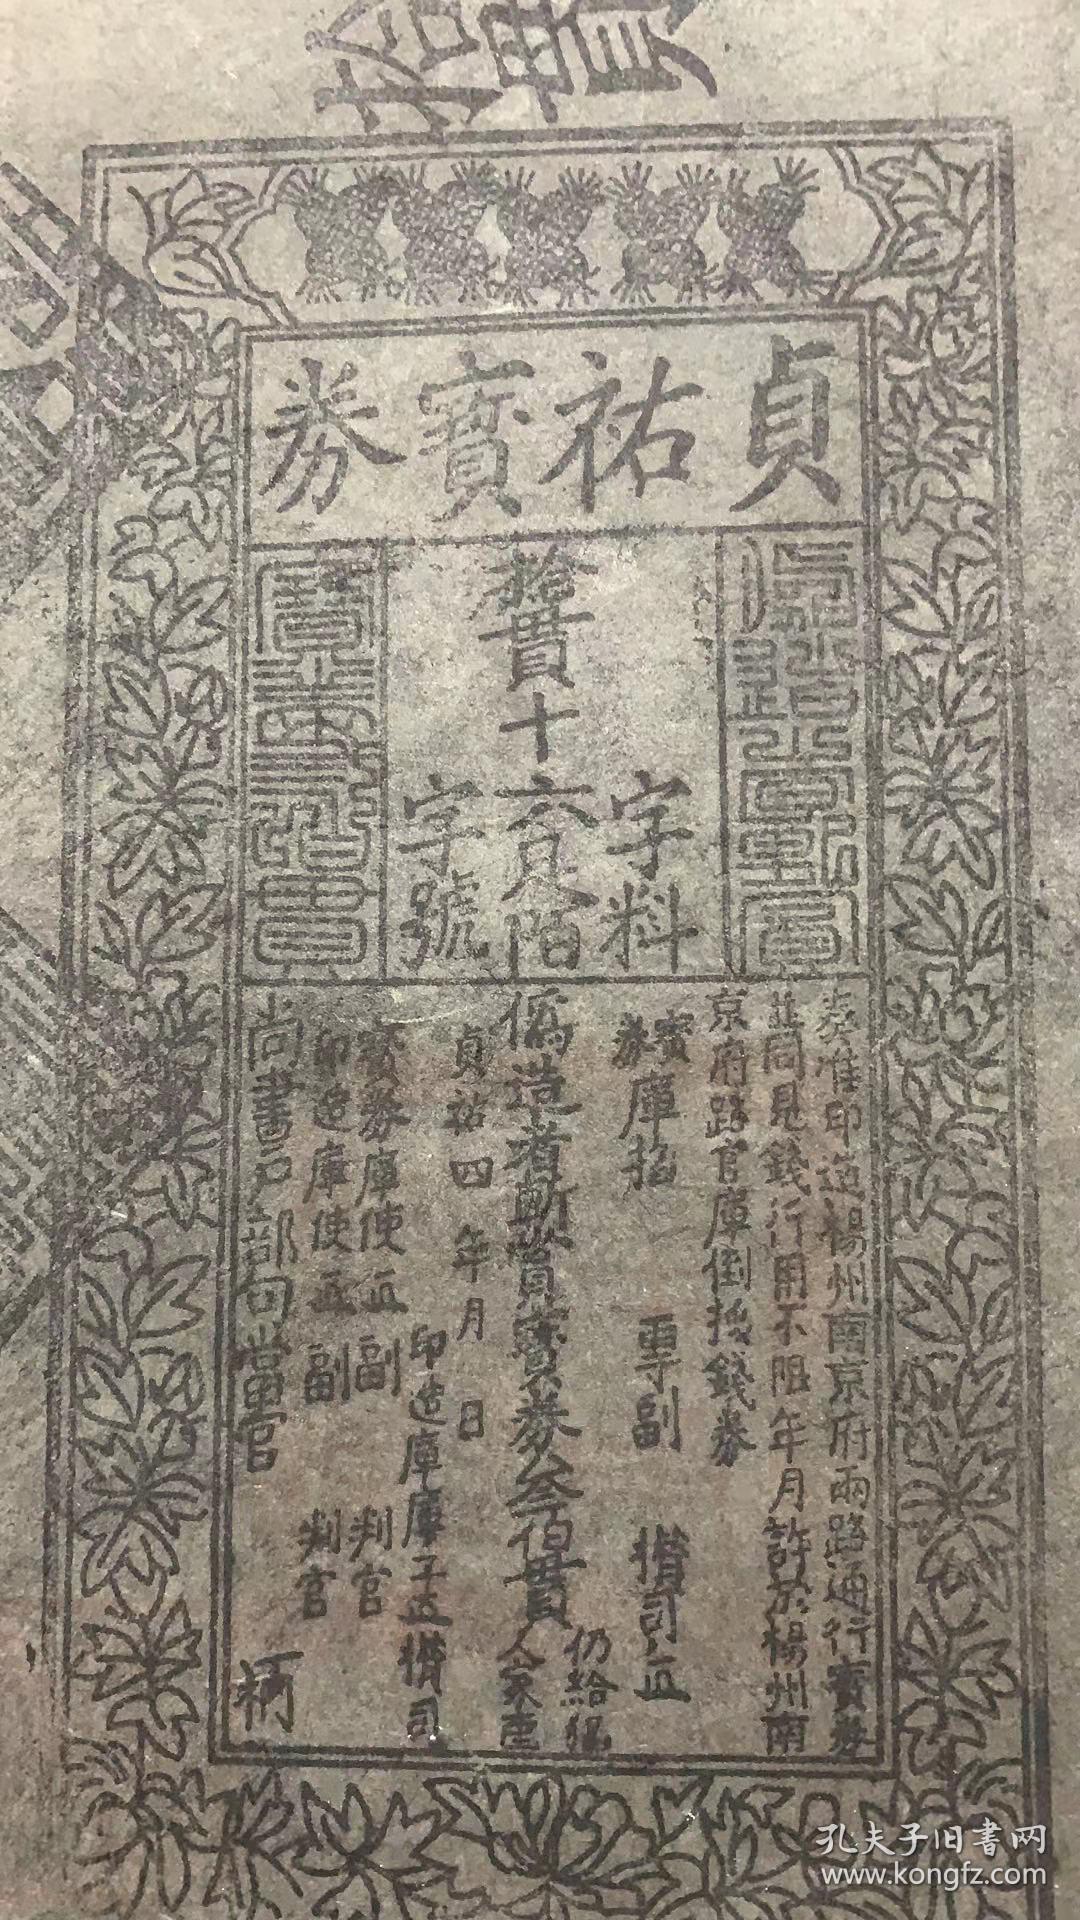 拾貫
貞祐寶券
拾貫十六貝陌
字料
字號
奏准印造楊州南京府兩路通行寶券
並同見錢行用不限年月許於楊州南
京府路官庫倒換錢券
寶券庫掐 專副 攢司 㢧
偽造者斬賞寶券叁佰貫
仍給犯人家産
貞祐四年 月 日
印造庫庫子㢧攢司
寶券庫使㢧副 判官
印造庫使㢧副 判官
尚書戶部句當官
孔夫子旧書网
www.kongfz.com